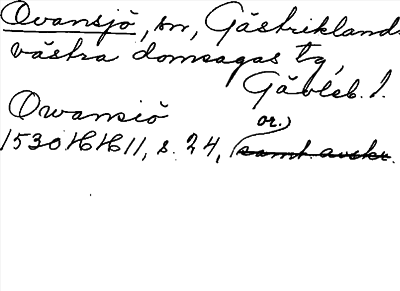 Ovansjö, sn, Gästriklands
västra domsagas tg,
Gävleb. l.
Owansiö
or.)
1530 HH 11, s. 24, (samt. avskr.